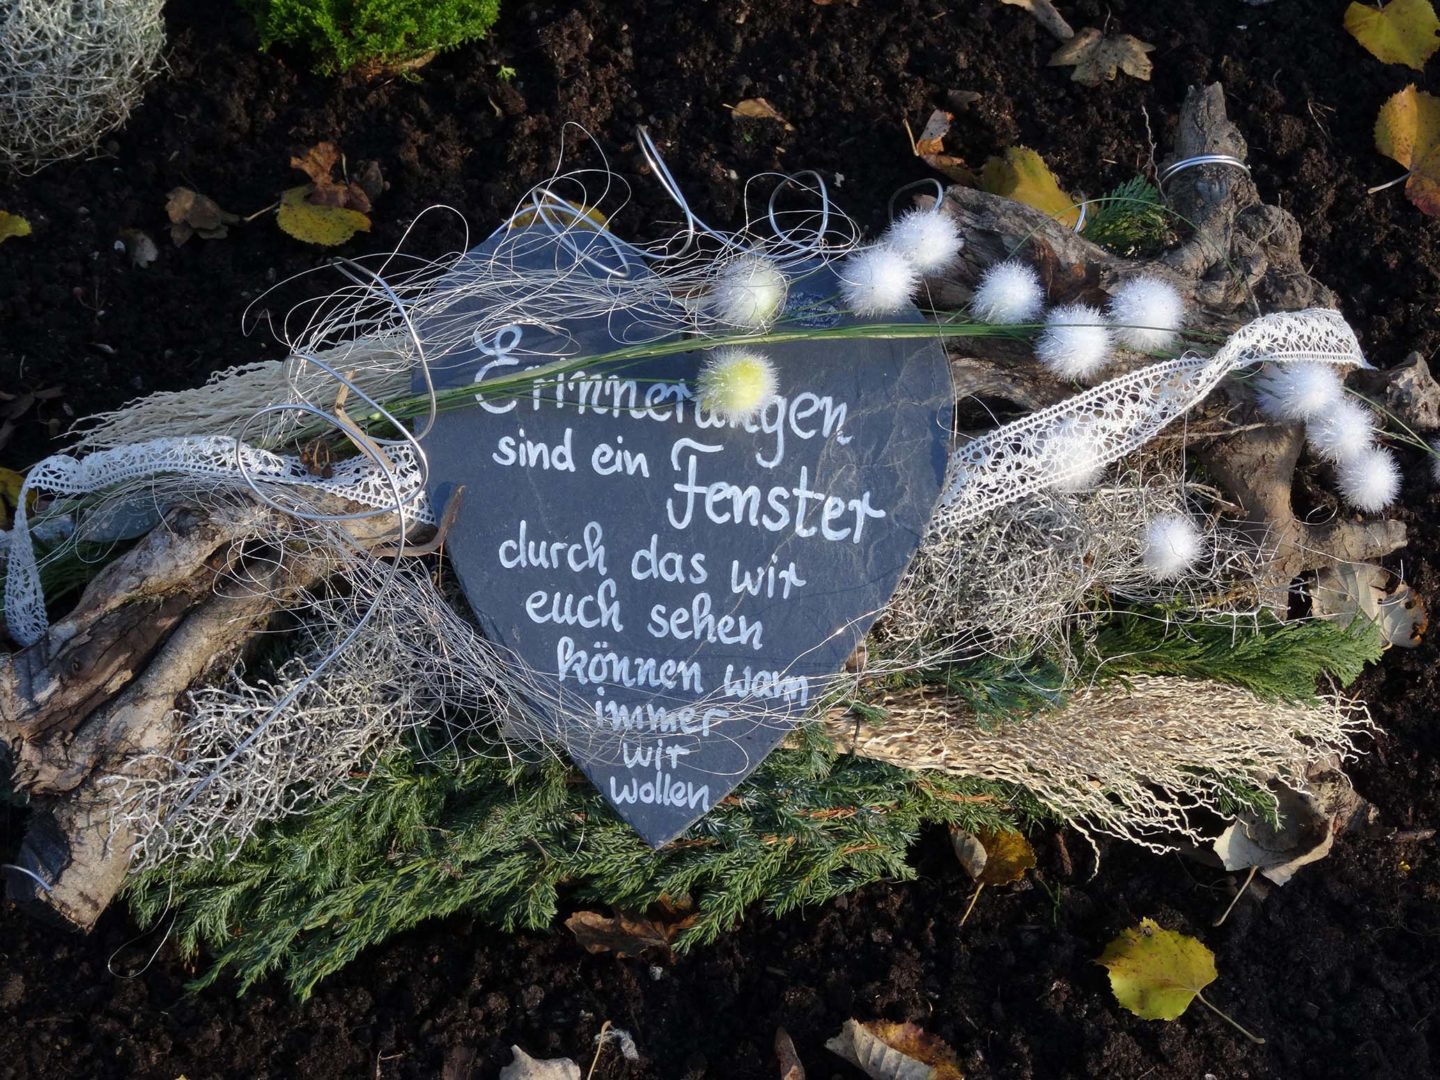 Erinnerungen
sind ein Fenster
durch das wir
euch sehen
können wann
immer
wir
wollen